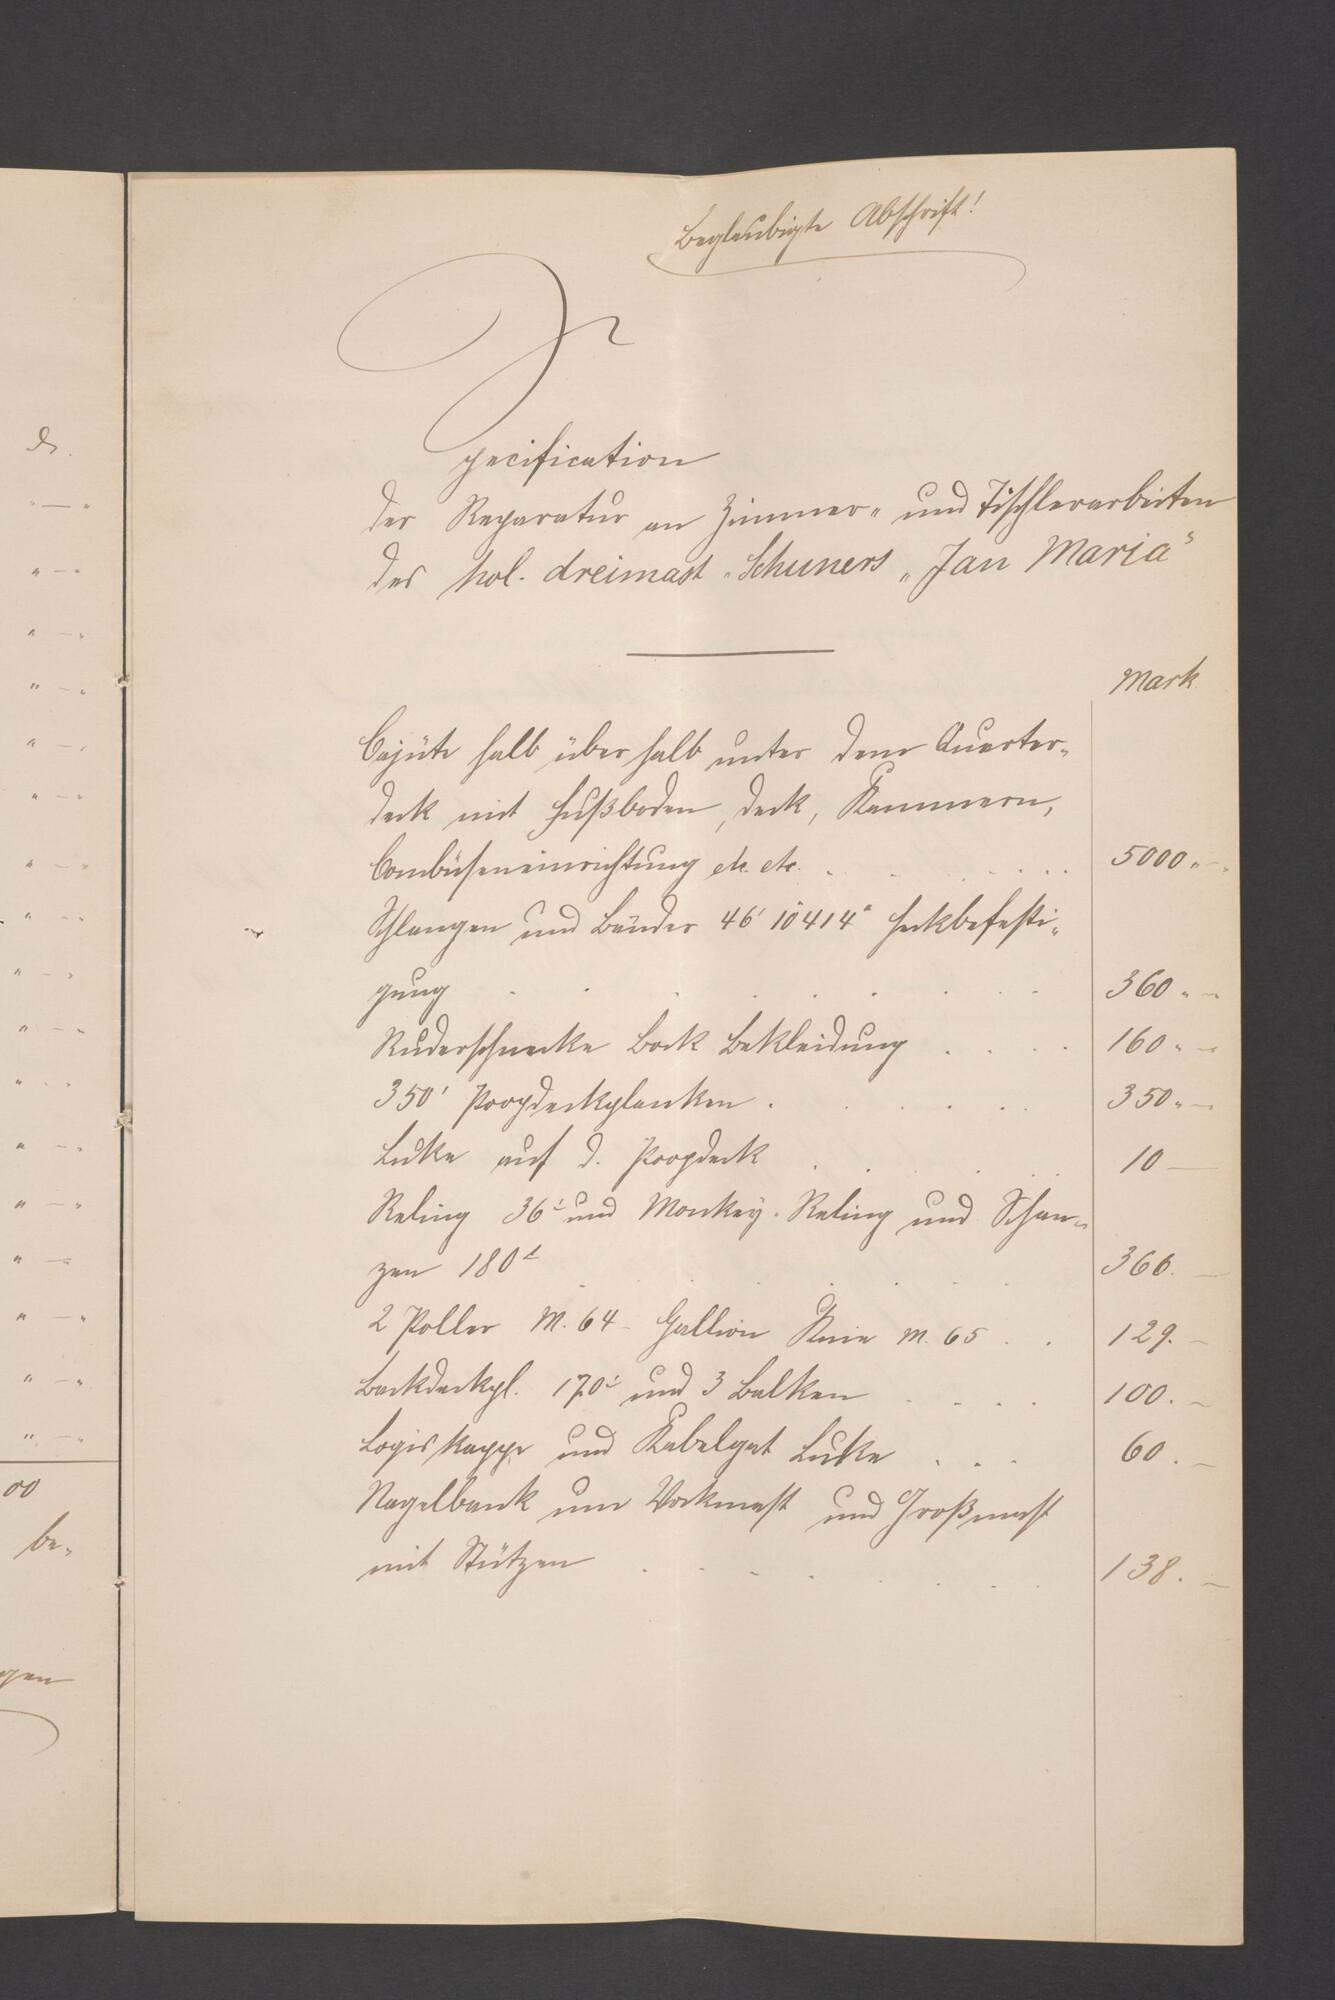 Beglaubigte Abschrift!
Specification
der Reparatur an Zimmer- und Tischlerarbeiten
des hol. dreimast-Schuners "Jan Maria"
Mark
Cajüte halb über halb unter dem Quarter-
deck mit Fußboden, Deck, Kammern,
Combüseneinrichtung etc. etc. 5000 " —
Schlangen und Bänder 46' 10"414" Heckbefesti-
gung 360 " —
Ruderschnecke Bock Bekleidung 160 " —
350' Poopdeckplanken 350 " —
Luke auf d. Poopdeck 10 —
Reling 36' und Monkey-Reling und Schan-
zen 180' 366. —
2 Poller M. 64 - Gallion Knie M. 65 129. —
Backdeckpl. 170' und 3 Balken 100. —
Logiskappe und Kabelgat Luke 60. —
Nagelbank um Vockmast und Großmast
mit Stützen 138. —
00
be-
gen